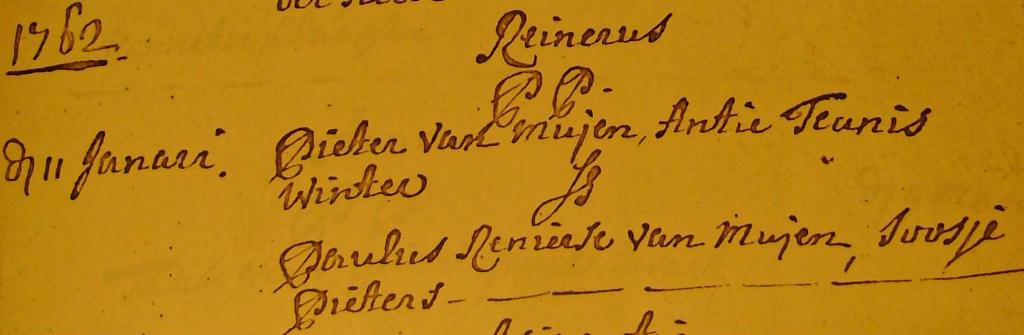 1762.
Reinerus
PP
dn 11 Janari. Pieter van Mujen, Antie Teunis
Winter SS
Paulus Reniese van Mujen, Soosje
Pieters - — — — —